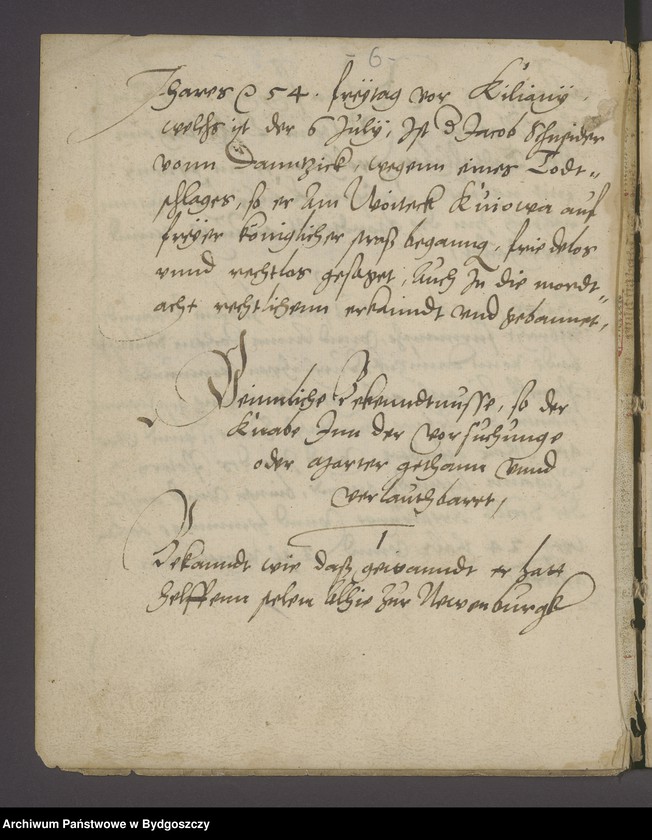 - 6 -
Jhares @ 54. freÿtag vor Kilianÿ.
welchs ist der 6 Julÿ, ist d Jacob Schneider
vonn Danntzick, wegenn eines Todt„
schlages, so er Am Woiteck Kuiowa auf
freÿer königlicher straß beganng, friedelos
vnnd rechtlos gesaget, Auch Jn die mordt„
acht rechtlichenn erkanndt vnd gebannet,
Peinnliche Bekenndtnusse, so der
Knabe Jnn der vorsuchunge
oder marter gethann vnnd
verlauthbarrt,
1
Bekanndt wie daß gewanndt er hatt
helffenn stelen Alhie zur Newenburgk
Archiwum Państwowe w Bydgoszczy